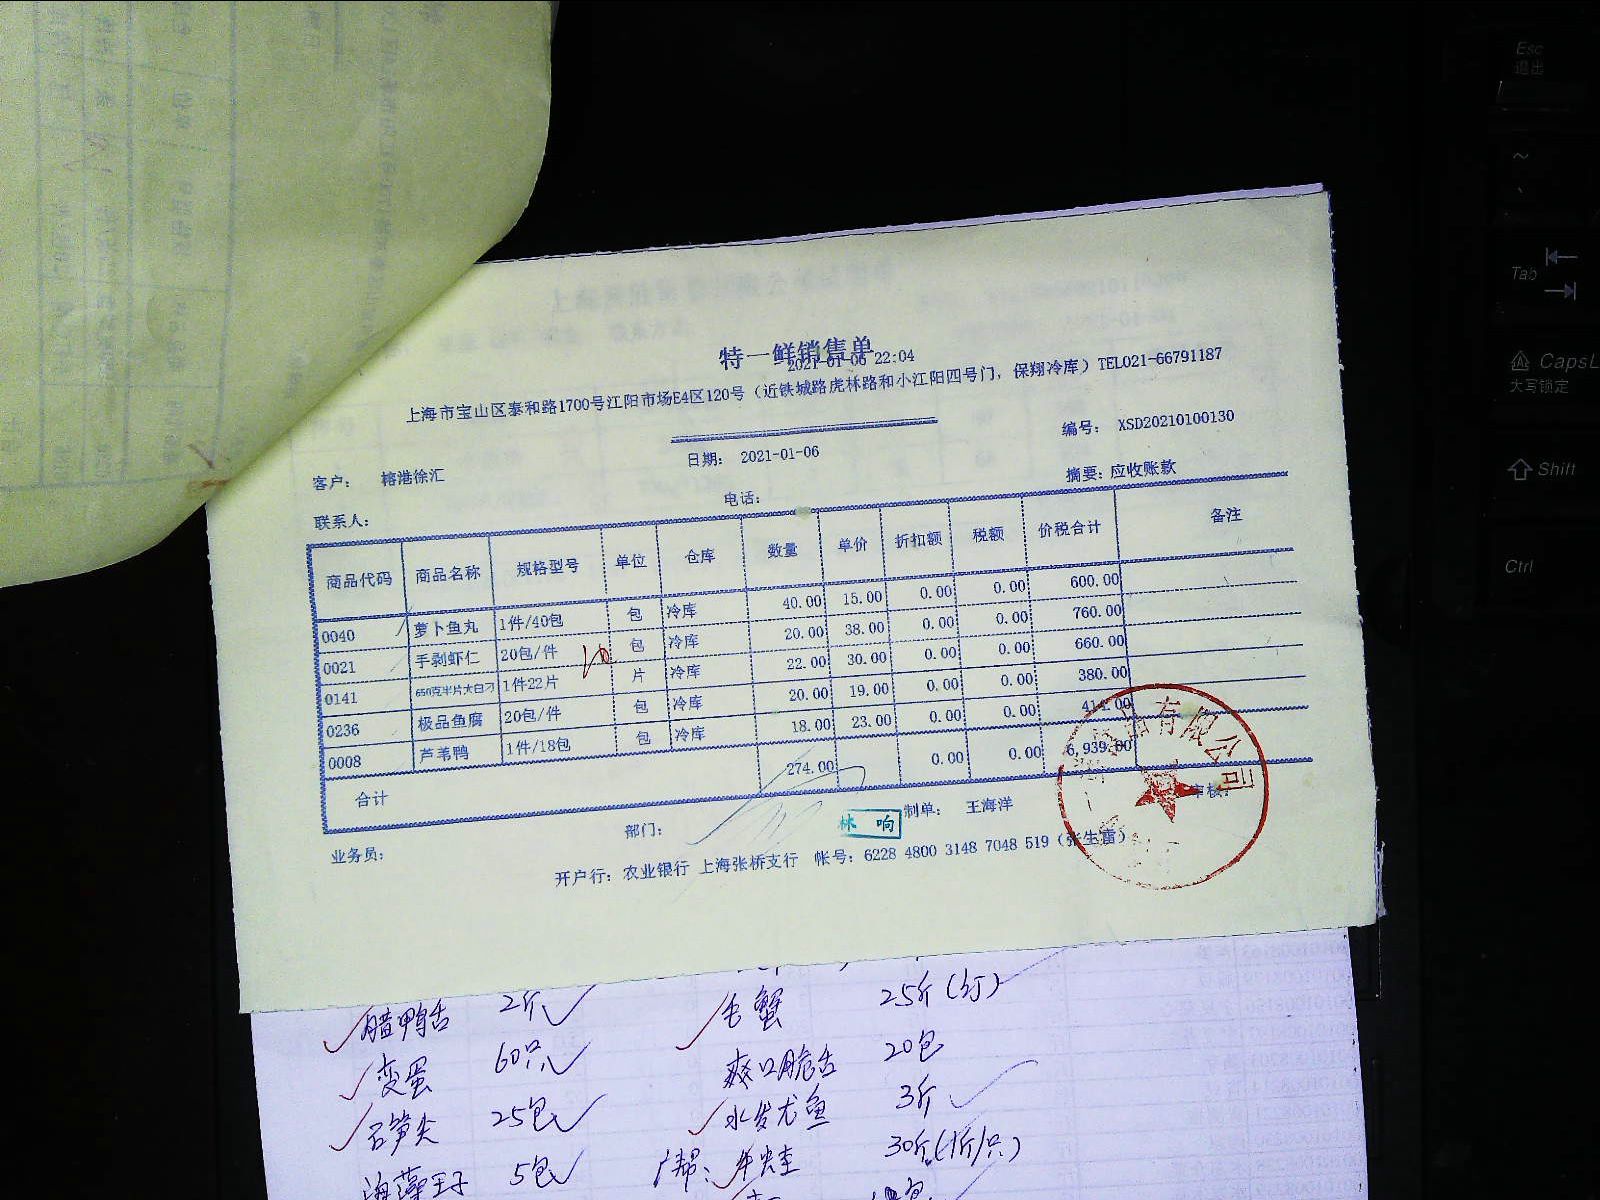 特一鲜销售单
2021-01-06 22:04
上海市宝山区泰和路1700号江阳市场E4区120号（近铁城路虎林路和小江阳四号门，保翔冷库）TEL021-66791187
编号： XSD20210100130
日期： 2021-01-06
客户： 榕港徐汇
摘要：应收账款
电话：
联系人：
商品代码 商品名称 规格型号 单位 仓库 数量 单价 折扣额 税额 价税合计 备注
0040 萝卜鱼丸 1件/40包 包 冷库 40.00 15.00 0.00 0.00 600.00
0021 手剥虾仁 20包/件 包 冷库 20.00 38.00 0.00 0.00 760.00
10
0141 650克半片大白刁 1件22片 片 冷库 22.00 30.00 0.00 0.00 660.00
0236 极品鱼腐 20包/件 包 冷库 20.00 19.00 0.00 0.00 380.00
0008 芦苇鸭 1件/18包 包 冷库 18.00 23.00 0.00 0.00 414.00
合计 274.00 0.00 0.00 6,939.00
业务员： 部门： 林响 制单： 王海洋 审核：
开户行：农业银行 上海张桥支行 帐号：6228 4800 3148 7048 519（张生雷）
有限公司
腊鸭舌 2斤 毛蟹 25斤
变蛋 60只 爽口脆舌 20包
石笋尖 25包 水发尤鱼 3斤
5包 牛蛙 30斤(1斤/只)
Esc
退出
~
Tab
CapsL
大写锁定
Shift
Ctrl